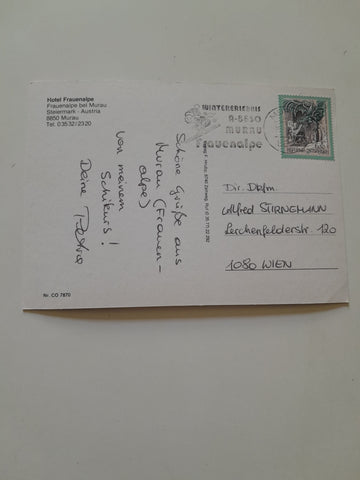 Hotel Frauenalpe
Frauenalpe bei Murau
Steiermark · Austria
8850 Murau
Tel. 03532/2320
WINTERERLEBNIS
A-8850
MURAU
Frauenalpe
Schöne Grüße aus
Murau (Frauen-
alpe)
von meinem
Schikurs!
Deine Petra
Dir. Dofm.
Wilfred STIRNEMANN
Lerchenfelderstr. 120
1080 WIEN
Nr. CO 7870